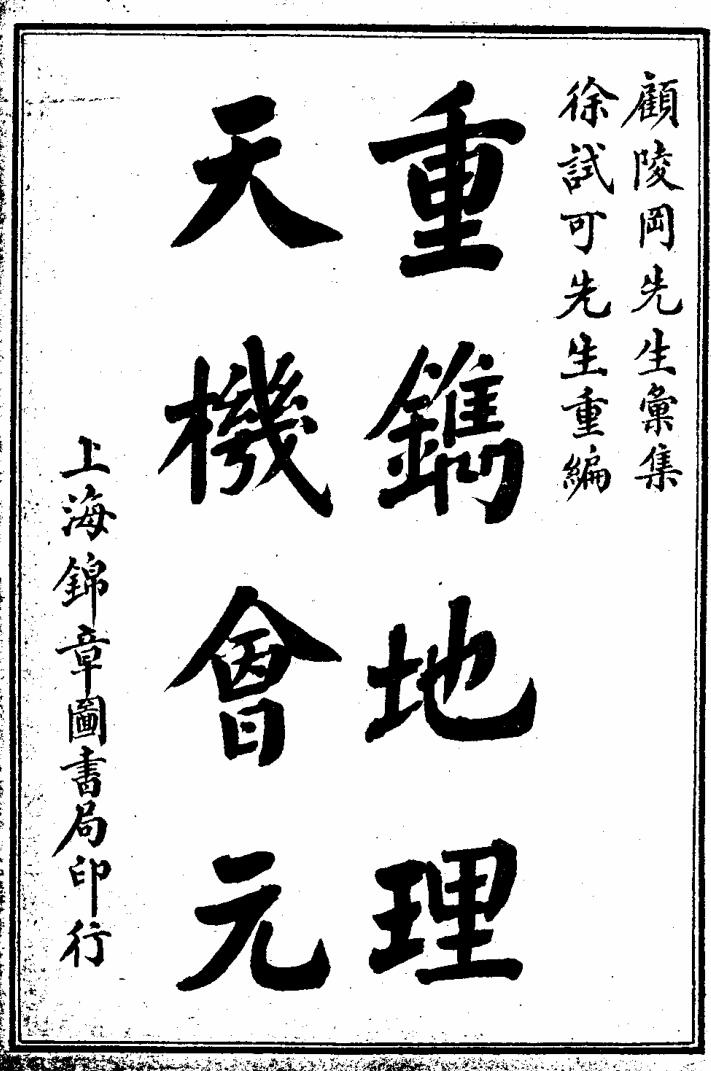 顧陵岡先生彙集
徐試可先生重編
重鐫地理
天機會元
上海錦章圖書局印行